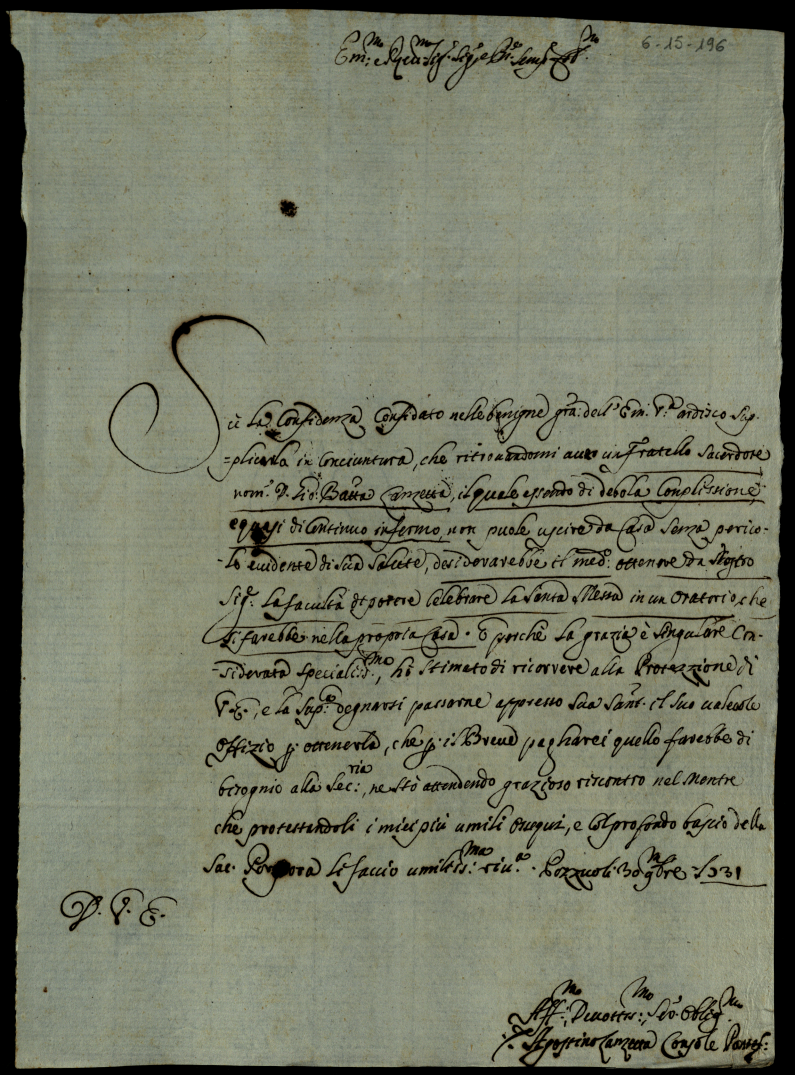 6-15-196
Em:mo e R.mo Sig.r Sig.r, e Pr.e Semp.
Sù la Confidenza Confidato nelle benigne gra: dell' Em: V.ra ardisco sup-
=plicarla in Conciuntura, che ritrovandomi avere un Fratello Sacerdote
nom.o D. Gio: Batta Lanzetta, il quale essendo di debola Complissione,
e quasi di Continuo infermo, non puole uscire da Casa senza perico-
-lo evidente di sua salute, desiderarebbe il med.o ottenere da Nostro
Sig.r la facultà di potere Celebrare la Santa Messa in un Oratorio, che
si farebbe nella propria Casa. E perche la grazia è singulare Con-
-siderata speciali:ma, hò stimato di ricorrere alla Protezzione di
V. E., e la sup.co degnarsi passarne appresso Sua Sant. il suo valevole
Offizio p ottenerla, che p il Breve pagharei quello farebbe di
bisognio alla Sec:ria, ne stò attendendo grazioso riscontro nel Mentre
che protestandoli i miei più umili ossequi, e Col profondo bascio della
Sac. Porpora li faccio umiliss:ma riv.a. Pozzuoli 30 9mbre 1731
D. V. E.
Aff:mo, Divotiss:mo, Ser. Oblig.mo
Agostino Lanzetta Console Pontif: